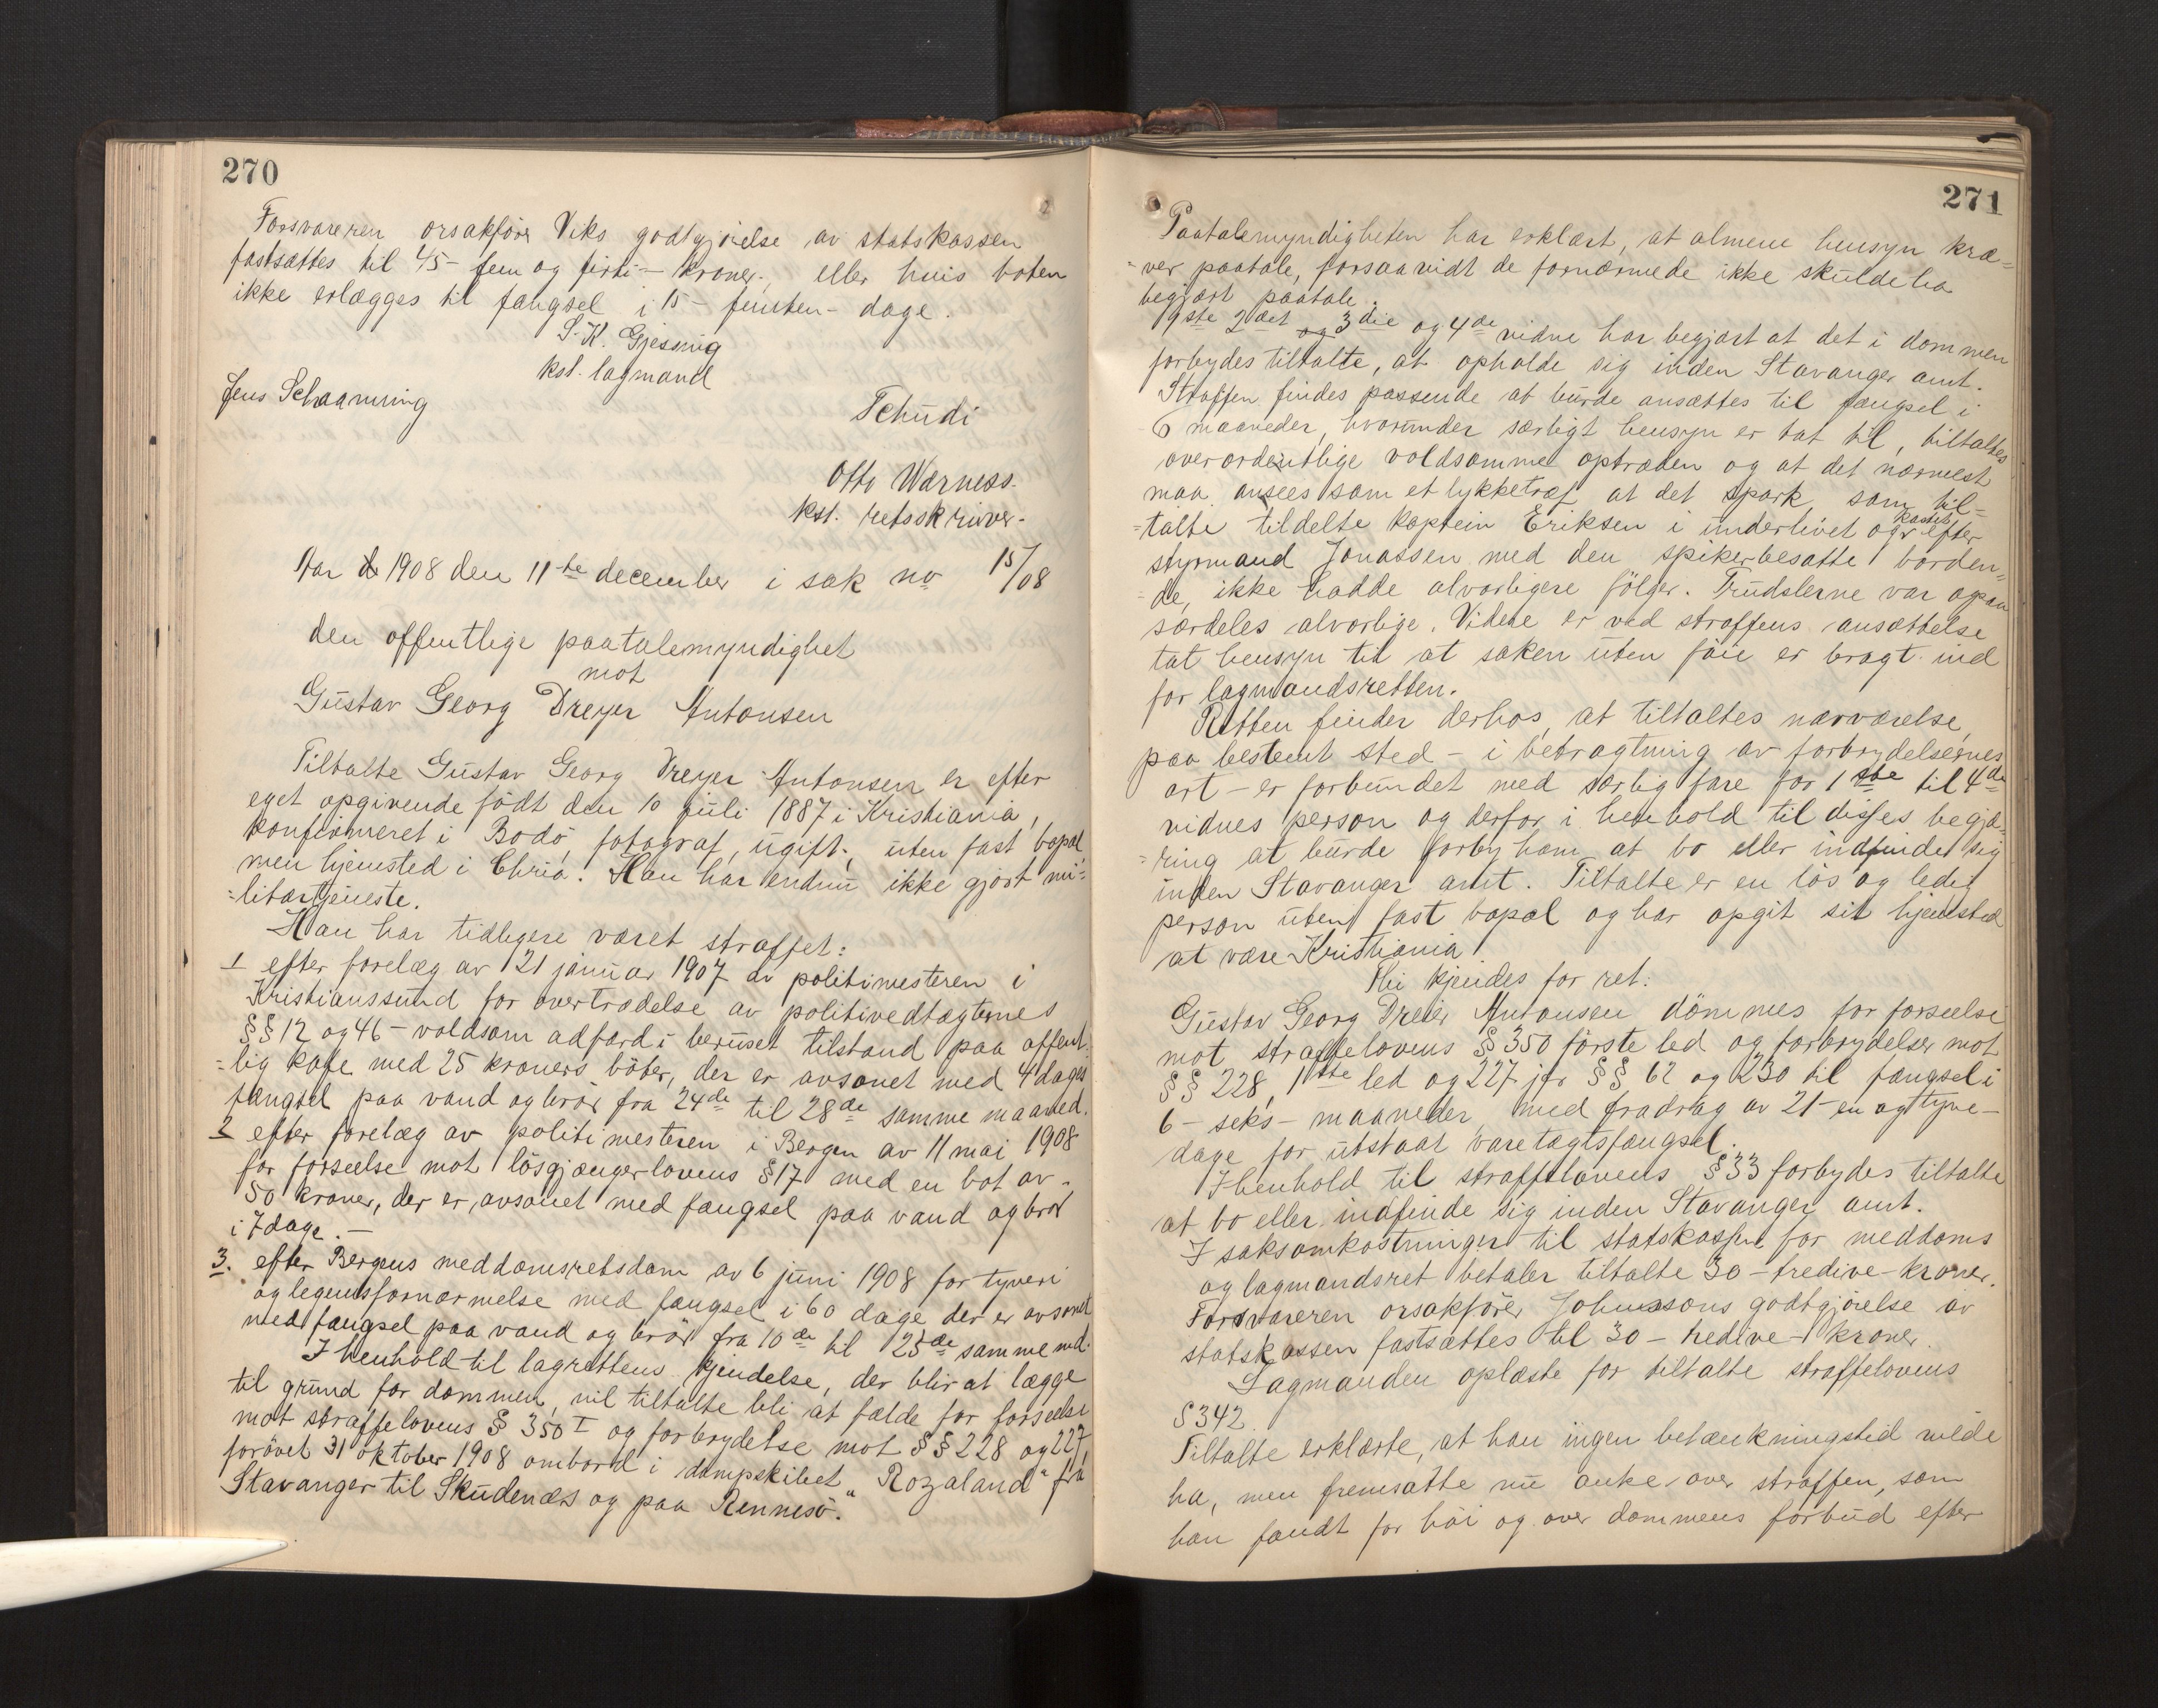 270
Forsvareren orsakfører Viks godtgjörelse av statskassen
fastsættes til 45 – fem og firti – kroner, eller hvis boten
ikke erlægges til fængsel i 15 – femten – dage.
S. K. Gjessing
kst. lagmand
Jens Schaanning
Tchudi
Otto Warness.
kst. retsskriver.
Aar 1908 den 11te december i sak no 15/08
den offentlige paatalemyndighet
mot
Gustav Georg Dreyer Antonsen
Tiltalte Gustav Georg Dreyer Antonsen er efter
eget opgivende födt den 10 juli 1887 i Kristiania,
konfirmeret i Bodö, fotograf, ugift, uten fast bopæl
men hjemsted i Chria. Han har endnu ikke gjort mi-
litærtjeneste.
Han har tidligere været straffet:
1 efter forelæg av 21 januar 1907 av politimesteren i
Kristianssund for overtrædelse av politivedtægternes
§§ 12 og 46 – voldsom adfærd i beruset tilstand paa offent-
lig kafe med 25 kroners böter, der er avsonet med 4 dages
fængsel paa vand og bröd fra 24de til 28de samme maaned.
2 efter forelæg av politimesteren i Bergen av 11 mai 1908
for forseelse mot lösgjængerlovens § 17 med en bot av
50 kroner, der er avsonet med fængsel paa vand og bröd
i 7 dage. –
3. efter Bergens meddomsretsdom av 6 juni 1908 for tyveri
og legemsfornærmelse med fængsel i 60 dage der er avsonet
med fængsel paa vand og bröd fra 10de til 25de samme md.
I henhold til lagrettens kjendelse, der blir at lægge
til grund for dommen, vil tiltalte bli at fælde for forseelse
mot straffelovens § 350 I og forbrydelse mot §§ 228 og 227,
forövet 31 oktober 1908 ombord i dampskibet "Rogaland" fra
Stavanger til Skudenæs og paa Rennesö.
271
Paatalemyndigheten har erklært, at almene hensyn kræ-
ver paatale, forsaavidt de fornærmede ikke skulde ha
begjært paatale.
1ste 2det og 3die og 4de vidne har begjært at det i dommen
forbydes tiltalte, at opholde sig inden Stavanger amt.
Straffen findes passende at burde ansættes til fængsel i
6 maaneder, hvorunder særligt hensyn er tat til, tiltaltes
overordentlige voldsomme optræden og at det nærmest
maa ansees som et lykketræf at det spark som til-
talte tildelte kaptein Eriksen i underlivet og kastet efter
styrmand Jonassen med den spikerbesatte borden-
de, ikke hadde alvorligere fölger. Trudslerne var ogsaa
særdeles alvorlige. Videre er ved straffens ansættelse
tat hensyn til at saken uten föie er bragt ind
for lagmandsretten.
Retten finder derhos, at tiltaltes nærværelse
paa bestemt sted – i betragtning av forbrydelsernes
art – er forbundet med særlig fare for 1ste til 4de
vidnes person og derfor i henhold til disses begjæ-
ring at burde forby ham at bo eller indfinde sig
inden Stavanger amt. Tiltalte er en lös og ledig
person uten fast bopæl og har opgit sit hjemsted
at være Kristiania
Thi kjendes for ret:
Gustav Georg Dreier Antonsen dömmes for forseelse
mot straffelovens § 350 förste led og forbrydelser mot
§§ 228, 1ste led og 227 jfr §§ 62 og 230 til fængsel i
6 – seks – maaneder, med fradrag av 21 – en og tyve –
dage for utstaat varetægtsfængsel.
I henhold til straffelovens § 33 forbydes tiltalte
at bo eller indfinde sig inden Stavanger amt.
I saksomkostninger til statskassen for meddoms
og lagmandsret betaler tiltalte 30 – tredive – kroner.
Forsvareren orsakförer Johnssons godtgjörelse av
statskassen fastsættes til 30 – tredive – kroner.
Lagmanden oplæste for tiltalte straffelovens
§ 342
Tiltalte erklærte, at han ingen betænkningstid vilde
ha, men fremsatte nu anke over straffen, som
han fandt for höi og over dommens forbud efter